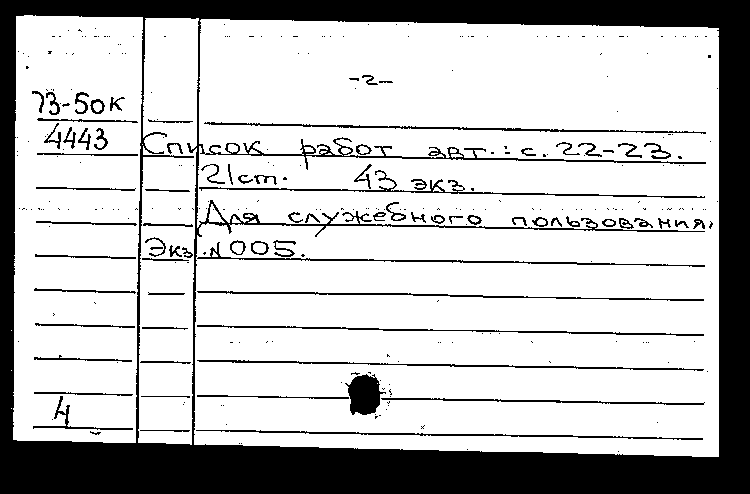 -2-
73-50к
4443 Список работ авт.: с. 22-23.
21ст. 43 экз.
Для служебного пользования.
Экз. №005.
4